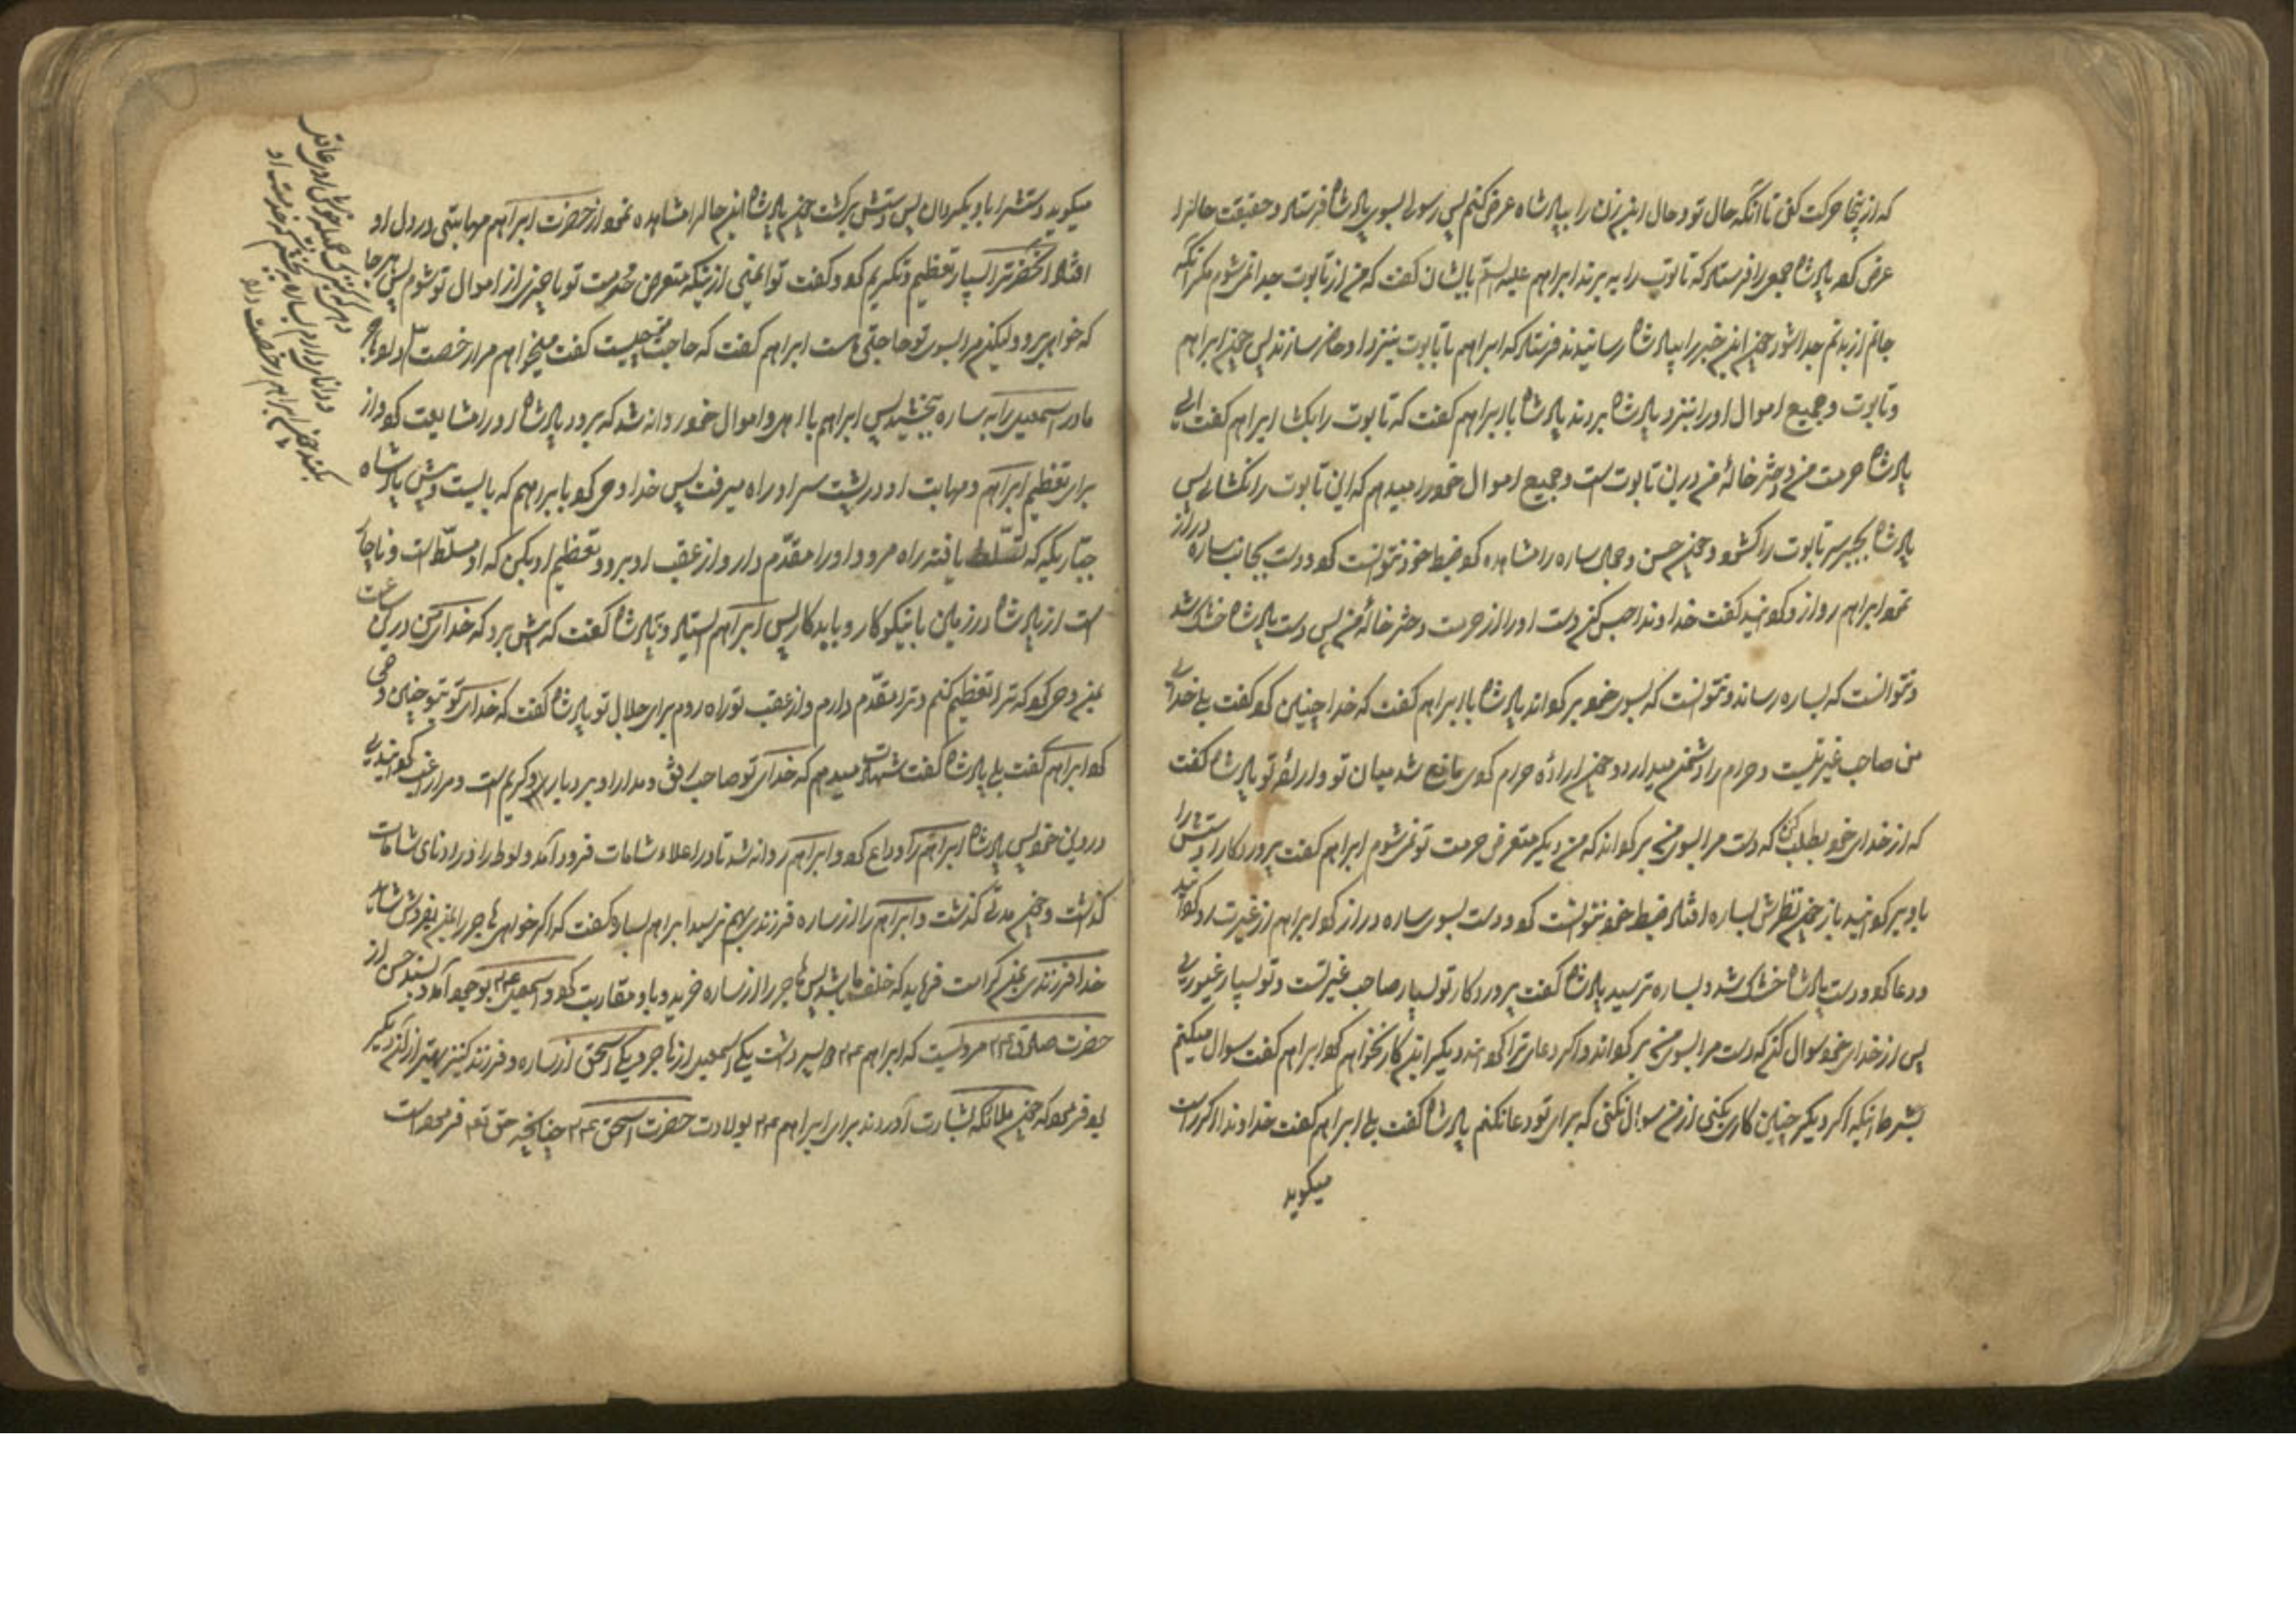 که از اینجا حرکت کنی تا آنکه حال تو و حال این زن را بپادشاه عرض کنم پس رسولی بسوی پادشاه فرستاد و حقیقت حال را
عرض کرد پادشاه جمعی را فرستاد که تابوت را به برند ابراهیم علیه السلم بایشان گفت که من از تابوت جدا نمی شوم مگر آنکه
جانم از بدنم جدا شود چون این خبر را بپادشاه رسانیدند فرستاد که ابراهیم با تابوت بنزد او حاضر سازند پس چون ابراهیم
و تابوت و جمیع اموال او را بنزد پادشاه بردند پادشاه با ابراهیم گفت که تابوت را بکشا ابراهیم گفت ای
پادشاه حرمت من و دختر خالهٔ من درین تابوت است و جمیع اموال خود را میدهم که این تابوت را نکشائی پس
پادشاه بجبر سر تابوت را کشود و چون حسن و جمال ساره را مشاهده کرد ضبط خود نتوانست کرد و دست بجانب ساره دراز
نمود ابراهیم رو از او گردانید گفت خداوندا حبس کن دست او را از حرمت و دختر خالهٔ من پس دست پادشاه خشک شد
و نتوانست که بساره رساند و نتوانست که بسوی خود برگرداند پادشاه با ابراهیم گفت که خدا چنین کرد گفت بلی خدای
من صاحب غیرتست و حرام را دشمن میدارد و چون ارادهٔ حرام کردی مانع شد میان تو و ارادهٔ تو پادشاه گفت
که از خدای خود بطلب که دست مرا بسوی من برگرداند که من دیگر متعرض حرمت تو نمی شوم ابراهیم گفت پروردکارا دستش را
باو برگردانید باز چون نظرش بساره افتاد ضبط خود نتوانست کرد و دست بسوی ساره دراز کرد ابراهیم از غیرت رو گردانید
و دعا کرد و دست پادشاه خشک شد و بساره نرسید پادشاه گفت پروردکار تو بسیار صاحب غیرتست و تو بسیار غیوری
پس از خدای خود سوال کن که دست مرا بسوی من برگرداند و اگر دعای ترا رد کند دیگر این کار نخواهم کرد ابراهیم گفت سوال میکنم
بشرط آنکه اگر دیگر چنین کاری بکنی از من سوال نکنی که برای تو دعا نکنم پادشاه گفت بلی ابراهیم گفت خداوندا اگر راست
میگوید
میگوید دستش را باو بگردان پس دستش برگشت چون پادشاه این حال را مشاهده نمود از حضرت ابراهیم مهابتی در دل او
افتاد و آنحضرت را بسیار تعظیم و تکریم کرد و گفت تو ایمنی از اینکه متعرض حرمت تو یا چیزی از اموال تو شوم پس هر جا
که خواهی برو ولیکن مرا بسوی تو حاجتی هست ابراهیم گفت که حاجت چیست گفت میخواهم مرا رخصت
مادر اسمعیل را به ساره بخشید پس ابراهیم با اهل و اموال خود روانه شد که برود پادشاه او را مشایعت کرد و از
برای تعظیم ابراهیم و مهابت او در پشت سر او راه میرفت پس خدا وحی کرد بابراهیم که بایست و پیش پادشاه
جباریکه که تسلط یافته راه مرو و او را مقدم دار و از عقب او برو و تعظیم او بکن که او مسلط است و ناچار
است از پادشاه در زمین یا نیکوکار و یا بدکار پس ابراهیم ایستاد و بپادشاه گفت که پیش برو که خدای من درین ساعت
بمن وحی کرد که ترا تعظیم کنم و ترا مقدم دارم و از عقب تو راه روم برای جلال تو پادشاه گفت که خدای تو بتو چنین وحی
کرد ابراهیم گفت بلی پادشاه گفت شهادت میدهم که خدای تو صاحب رفق و مدارا و بردبار و کریم است و مرا راغب گردانیدی
در دین خود پس پادشاه ابراهیم را وداع کرد و ابراهیم روانه شد تا در اعلاء شامات فرود آمد و لوط را در ادنای شامات
گذاشت و چون مدتی گذشت و ابراهیم را از ساره فرزندی بهم نرسید ابراهیم بساره گفت که اگر خواهی هاجر را بمن بفروش شاید
خدا فرزندی بمن کرامت فرماید که خلف ما باشد پس هاجر را از ساره خرید و باو مقاربت کرد و اسمعیل بوجود آمد و بسند حسن از
حضرت صادق مرویست که ابراهیم دو پسر داشت یکی اسمعیل از هاجر و یکی اسحق از ساره و فرزند کنیز بهتر از آن دیگر
بود فرمود که چون ملائکه بشارت آوردند برای ابراهیم بولادت حضرت اسحق چنانچه حق تعم فرموده است